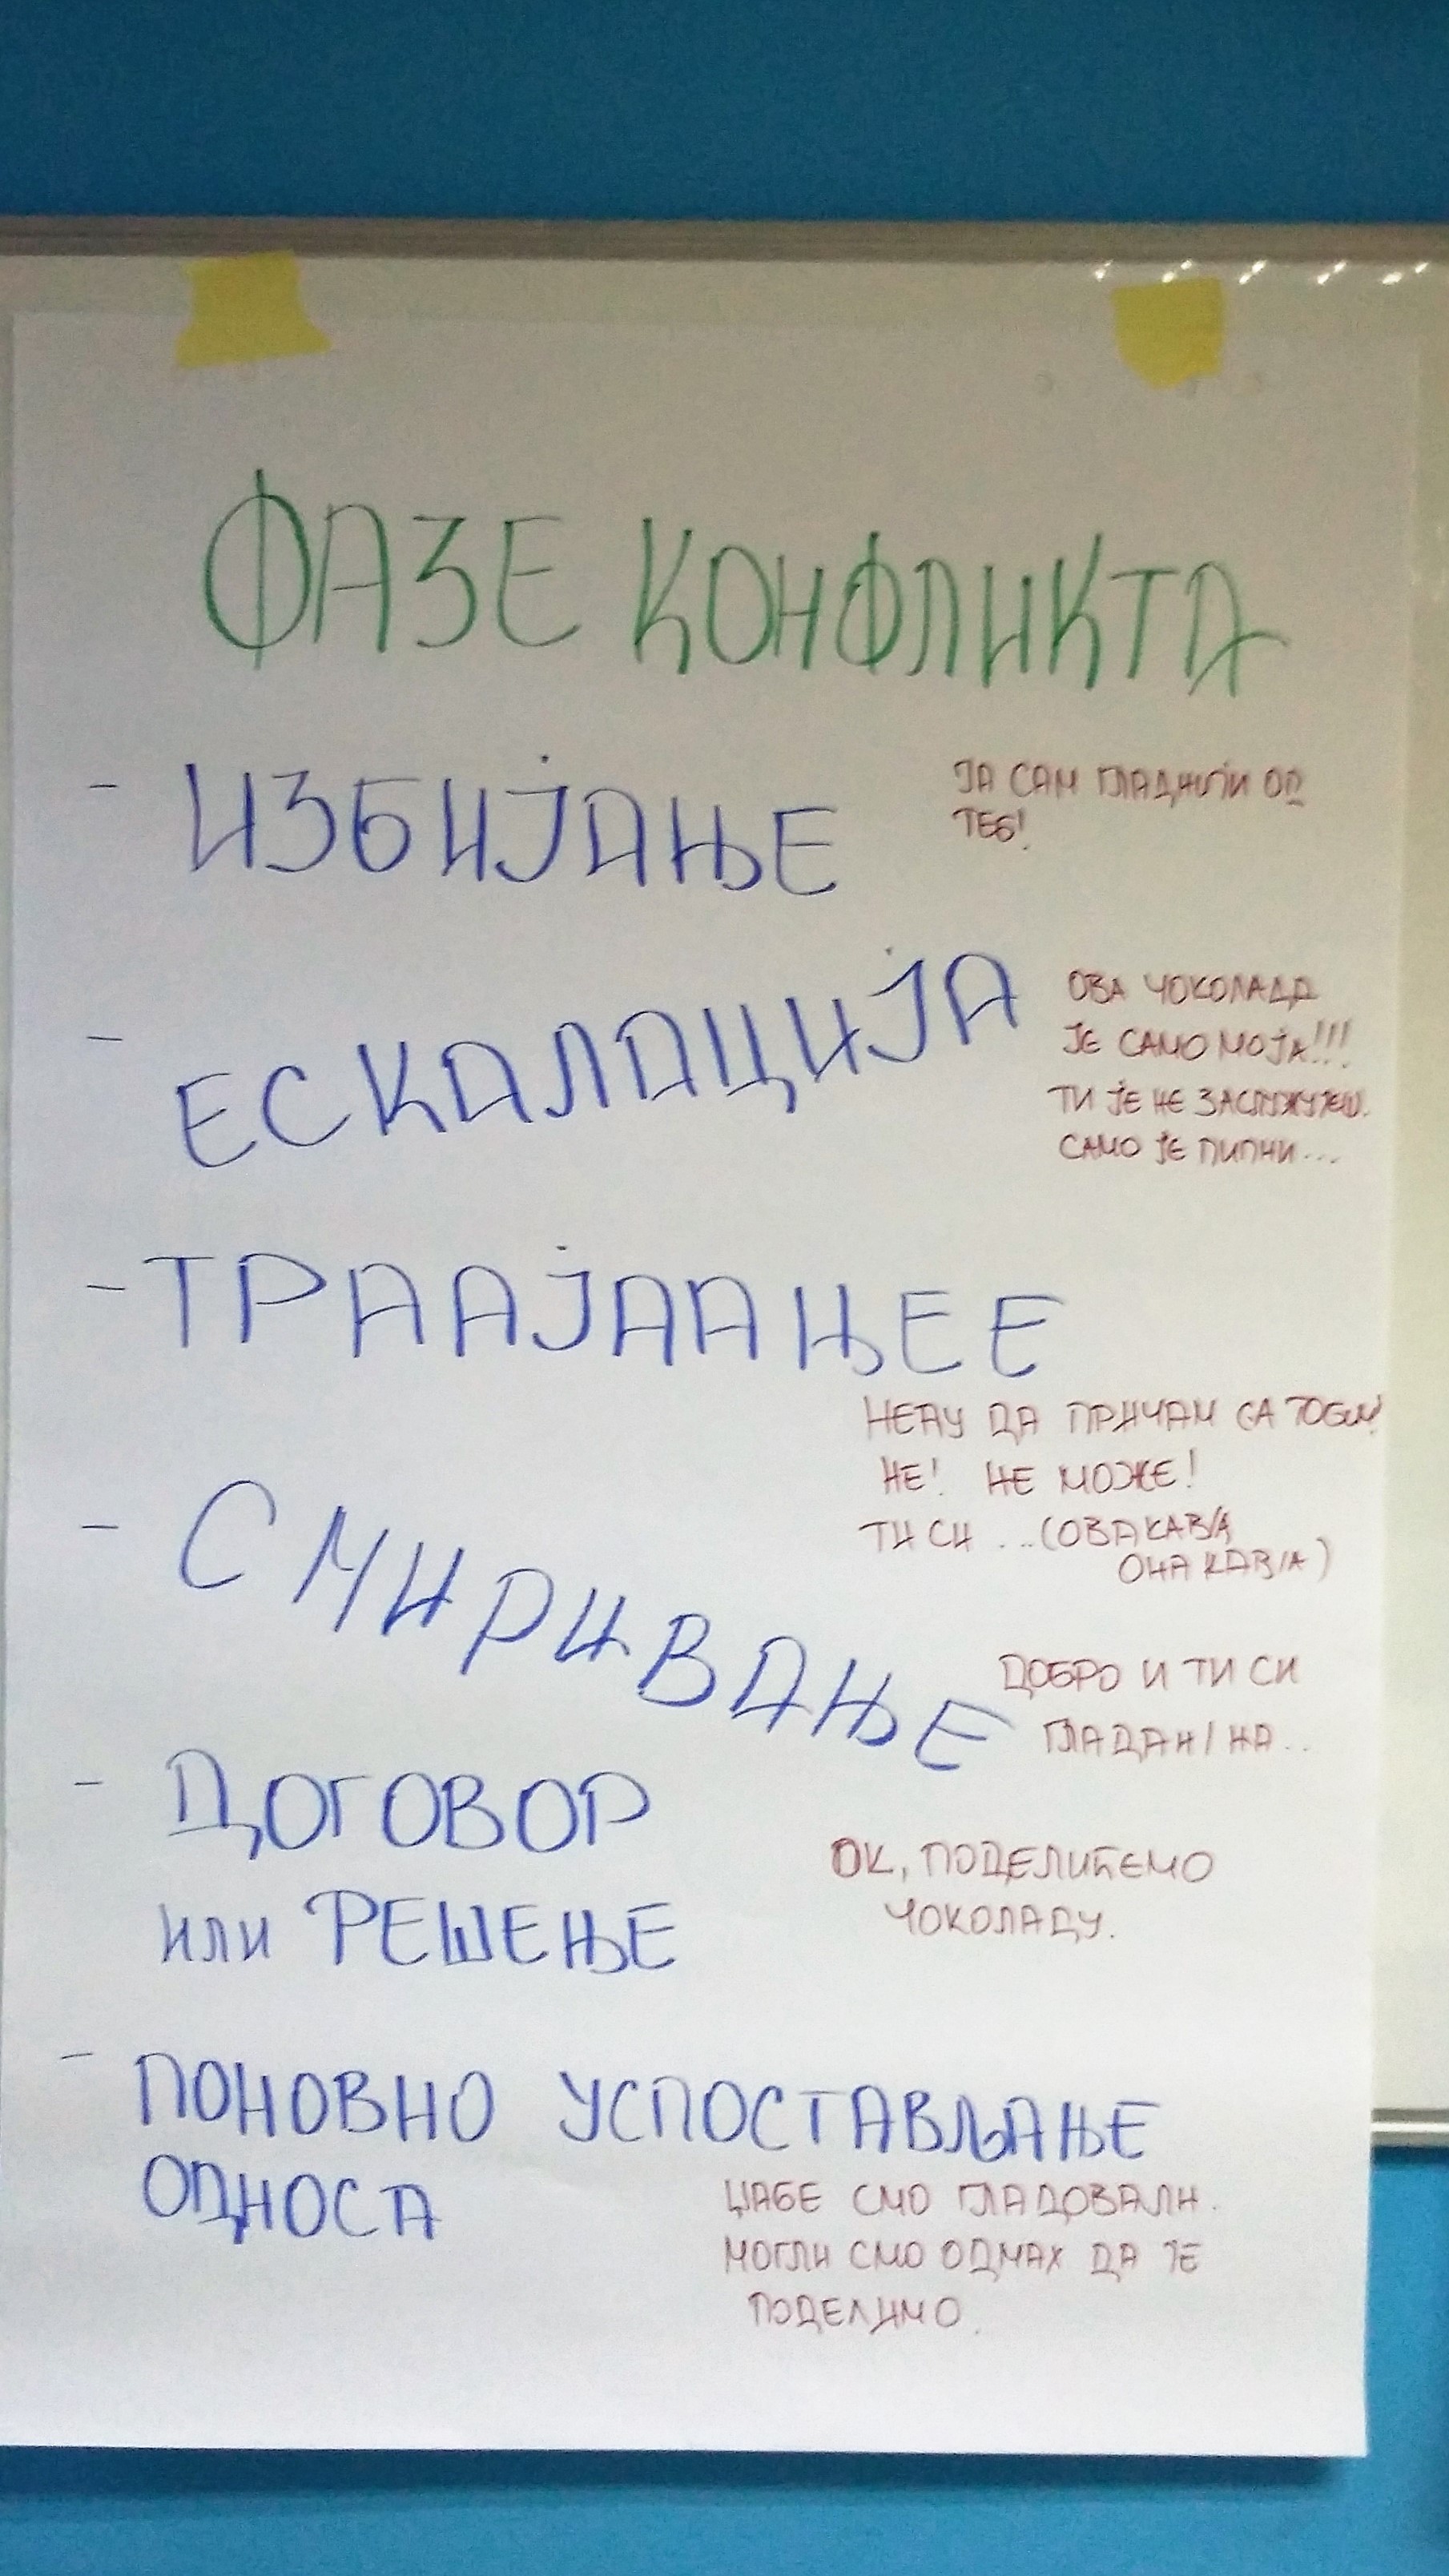 ФАЗЕ КОНФЛИКТА
- ИЗБИЈАЊЕ
ЈА САМ ГЛАДНИЈИ ОД
ТЕБ!
- ЕСКАЛАЦИЈА
ОВА ЧОКОЛАДА
ЈЕ САМО МОЈА!!!
ТИ ЈЕ НЕ ЗАСЛУЖУЈЕШ.
САМО ЈЕ ПИПНИ...
- ТРААЈААЊЕЕ
НЕЋУ ДА ПРИЧАМ СА ТОБОМ!
НЕ! НЕ МОЖЕ!
ТИ СИ ...(ОВАКАВ/А
ОНАКАВ/А)
- СМИРИВАЊЕ
ДОБРО И ТИ СИ
ГЛАДАН/НА..
- ДОГОВОР
ИЛИ РЕШЕЊЕ
ОК, ПОДЕЛИЋЕМО
ЧОКОЛАДУ.
- ПОНОВНО УСПОСТАВЉАЊЕ
ОДНОСА
ЏАБЕ СМО ГЛАДОВАЛИ.
МОГЛИ СМО ОДМАХ ДА ЈЕ
ПОДЕЛИМО.